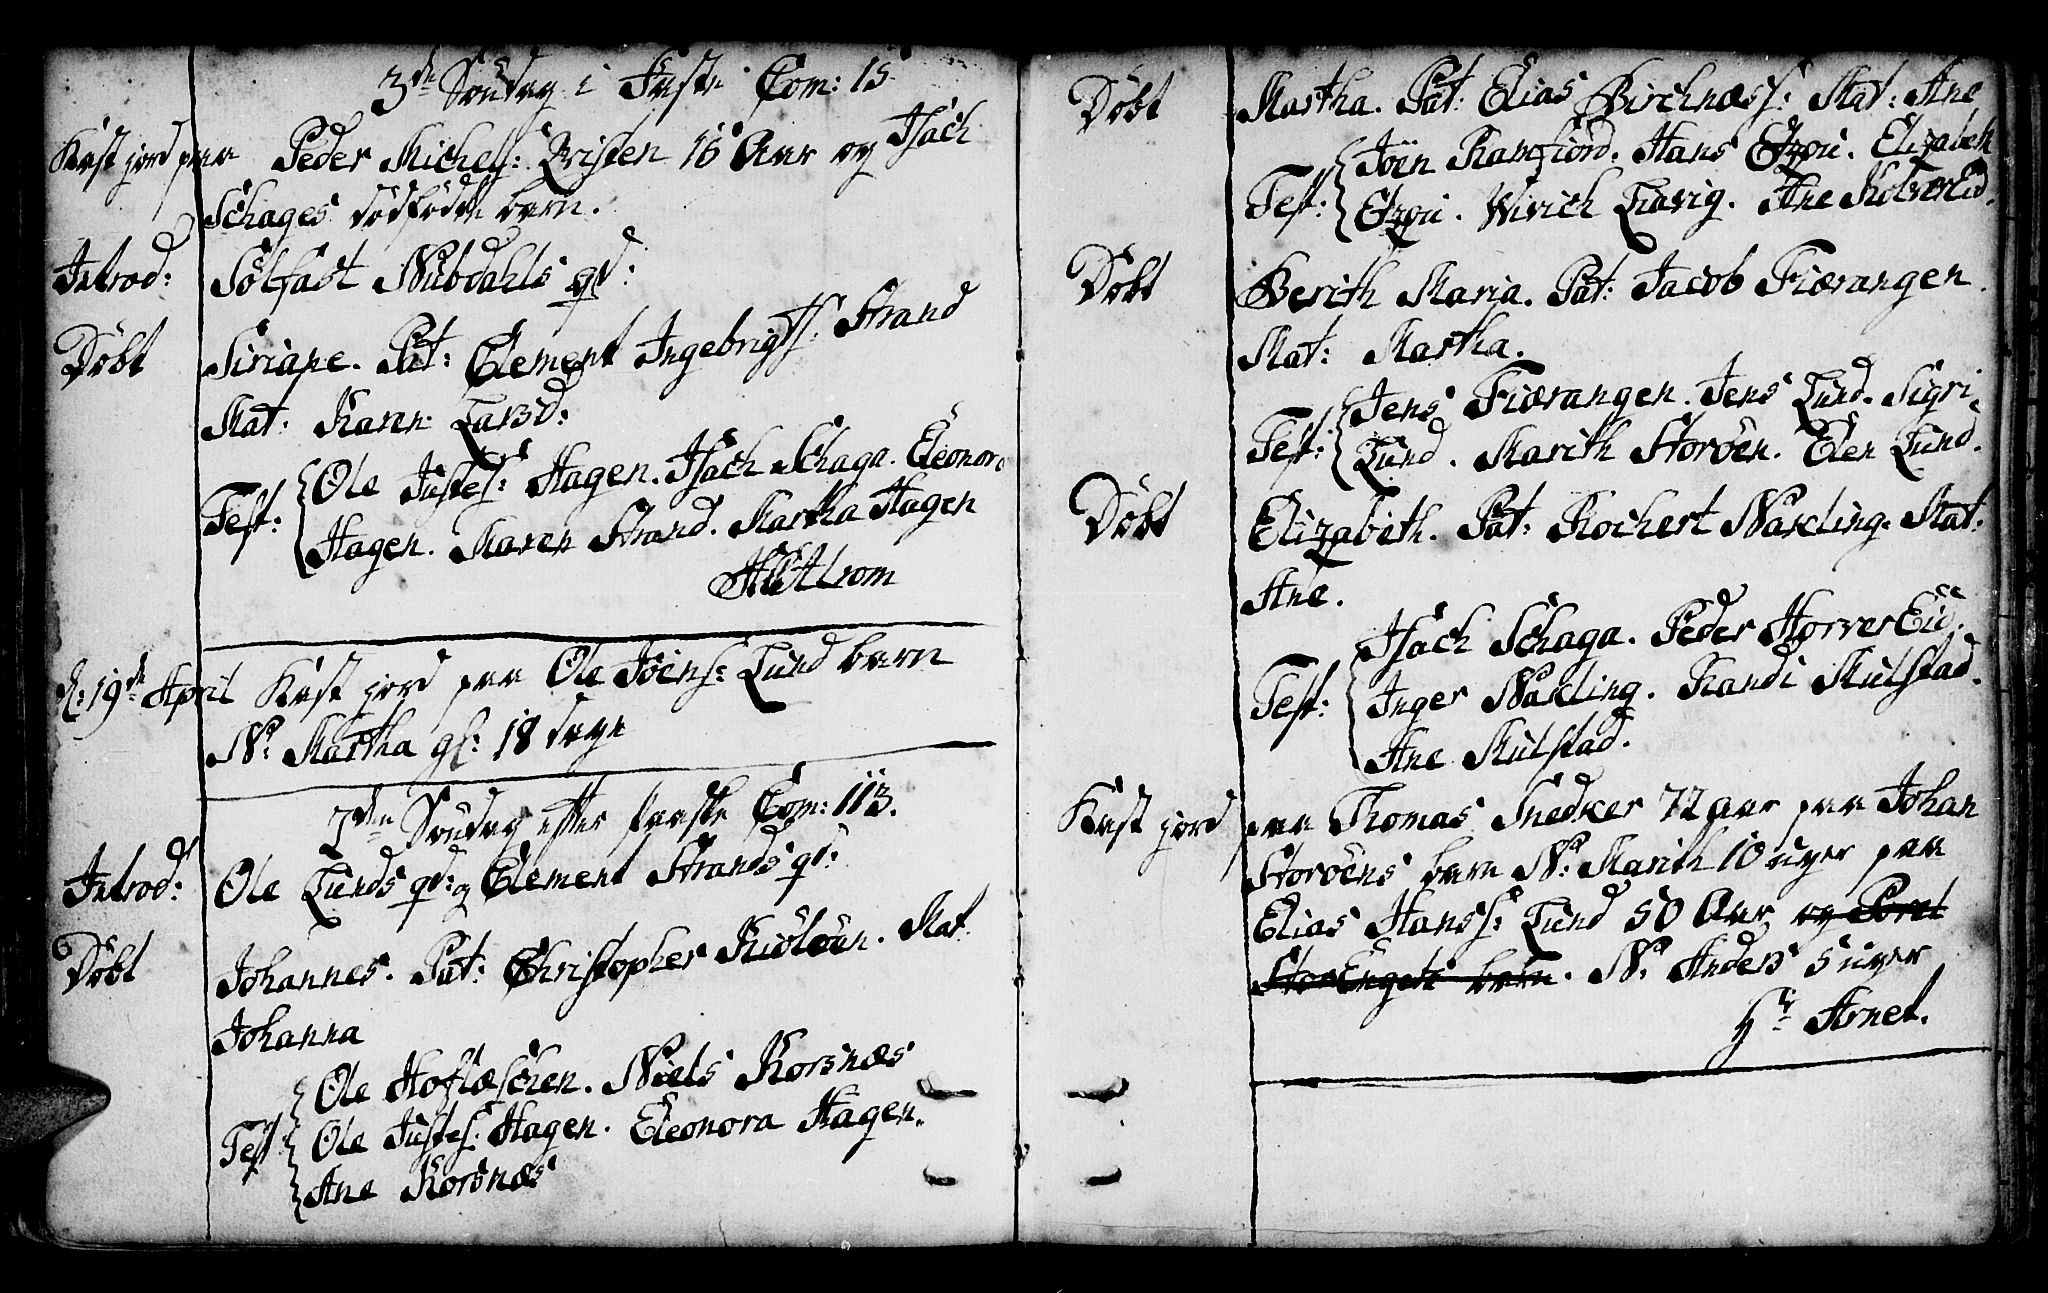 3de Søndag i Faste Com: 15
Kast jord paa Peder Michels: Qvisten 16 Aar og Isach
Schages dødfødte barn.
Introd: Solfast Nubdahls qv:
Døbt Siriane. Pat: Clement Ingebrigts: Strand
Mat: Karen Larsd:
Test: Ole Justes: Hagen. Isach Schaga. Eleonora
Hagen. Maren Strand. Martha Hagen
H Strom
d: 19de April Kast jord paa Ole Joens: Lund barn
N: Martha gl: 18 dage
2den Søndag efter paaske Com: 113.
Introd: Ole Lunds qv: og Clement Strands qv:
Døbt Johannes. Pat: Christopher Kiöloün. Mat
Johanna
Test Ole Hoflæschen. Niels Korsnæs
Ole Justes: Hagen. Eleonora Hagen.
Ane Korsnæs
Døbt Martha. Pat: Elias Birchnæss: Mat: Ane
Test: Joen Ramfiord. Hans Etzou. Elizabeth
Etzou. Wirich Lævig. Ane KolverEid.
Døbt Berith Maria. Pat: Jacob Fiærangen.
Mat: Martha.
Test: Jens Fiærangen. Jens Lund. Sigri
Lund. Marith Storöen. Elen Lund.
Døbt Elizabeth. Pat: Rochert Nakling. Mat:
Ane.
Test: Isach Schaga. Peder HorverEid.
Inger Nakling. Randi Mulstad.
Ane Mulstad.
Kast jord paa Thomas Snedker 72 aar paa Johan
Storöens barn N: Marith 10 uger paa
Elias Hanss: Lund 50 Aar og Poret
StorEngets barn. N: Anders 5 uger
Hr Arnet.